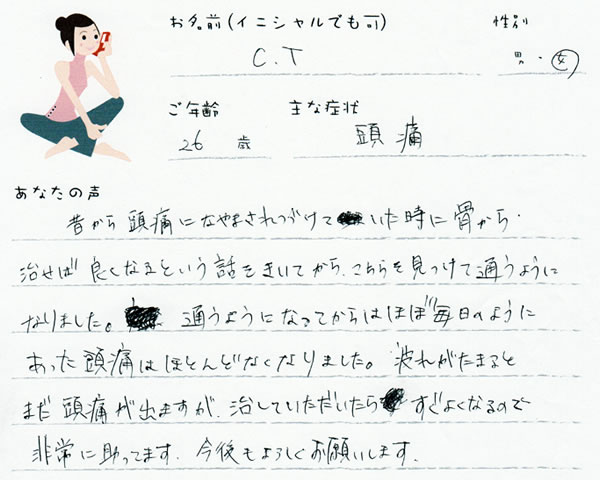 お名前(イニシャルでも可) 性別
C.T 男・女
ご年齢 主な症状
26 歳 頭痛
あなたの声
昔から頭痛になやまされつづけていた時に骨から
治せば良くなるという話をきいてから、こちらを見つけて通うように
なりました。通うようになってからはほぼ毎日のように
あった頭痛はほとんどなくなりました。疲れがたまると
まだ頭痛が出ますが、治していただいたらすぐよくなるので
非常に助ってます。今後もよろしくお願いします。